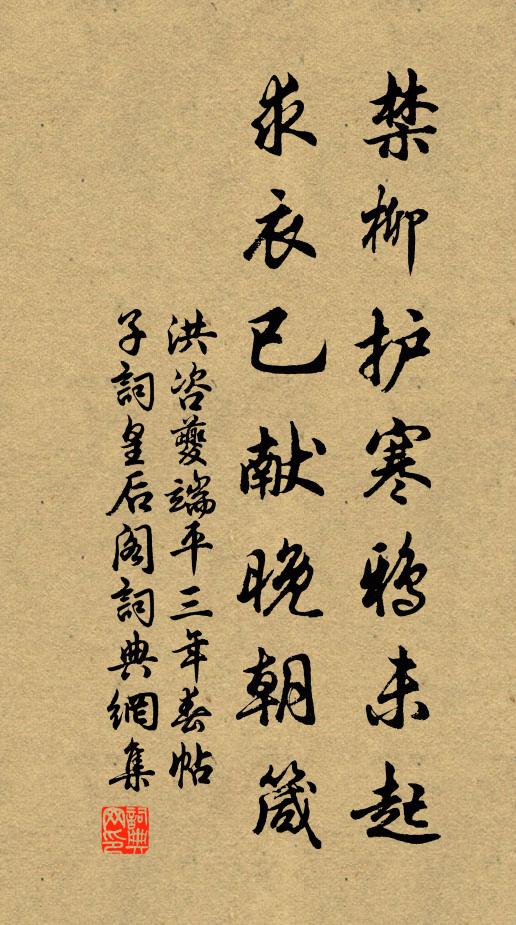 禁柳护寒鸦未起
求衣已献晚朝箴
洪咨夔端平三年春帖
子詞皇后阁詞典網集
詞典
网印